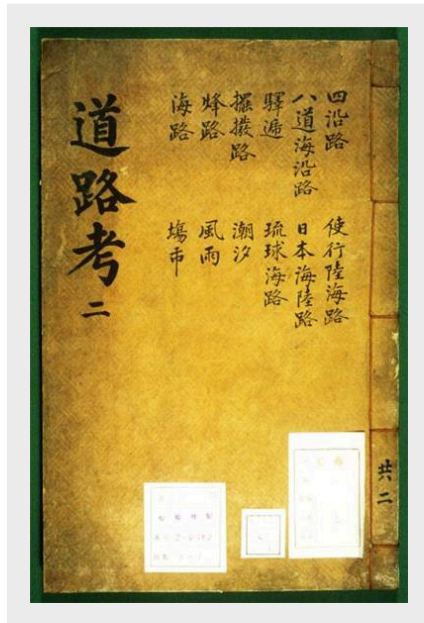 道路考 二
四沿路
八道海沿路
驛逓
擺撥路
烽路
海路
使行陸海路
日本海陸路
琉球海路
潮汐
風雨
塲市
共二